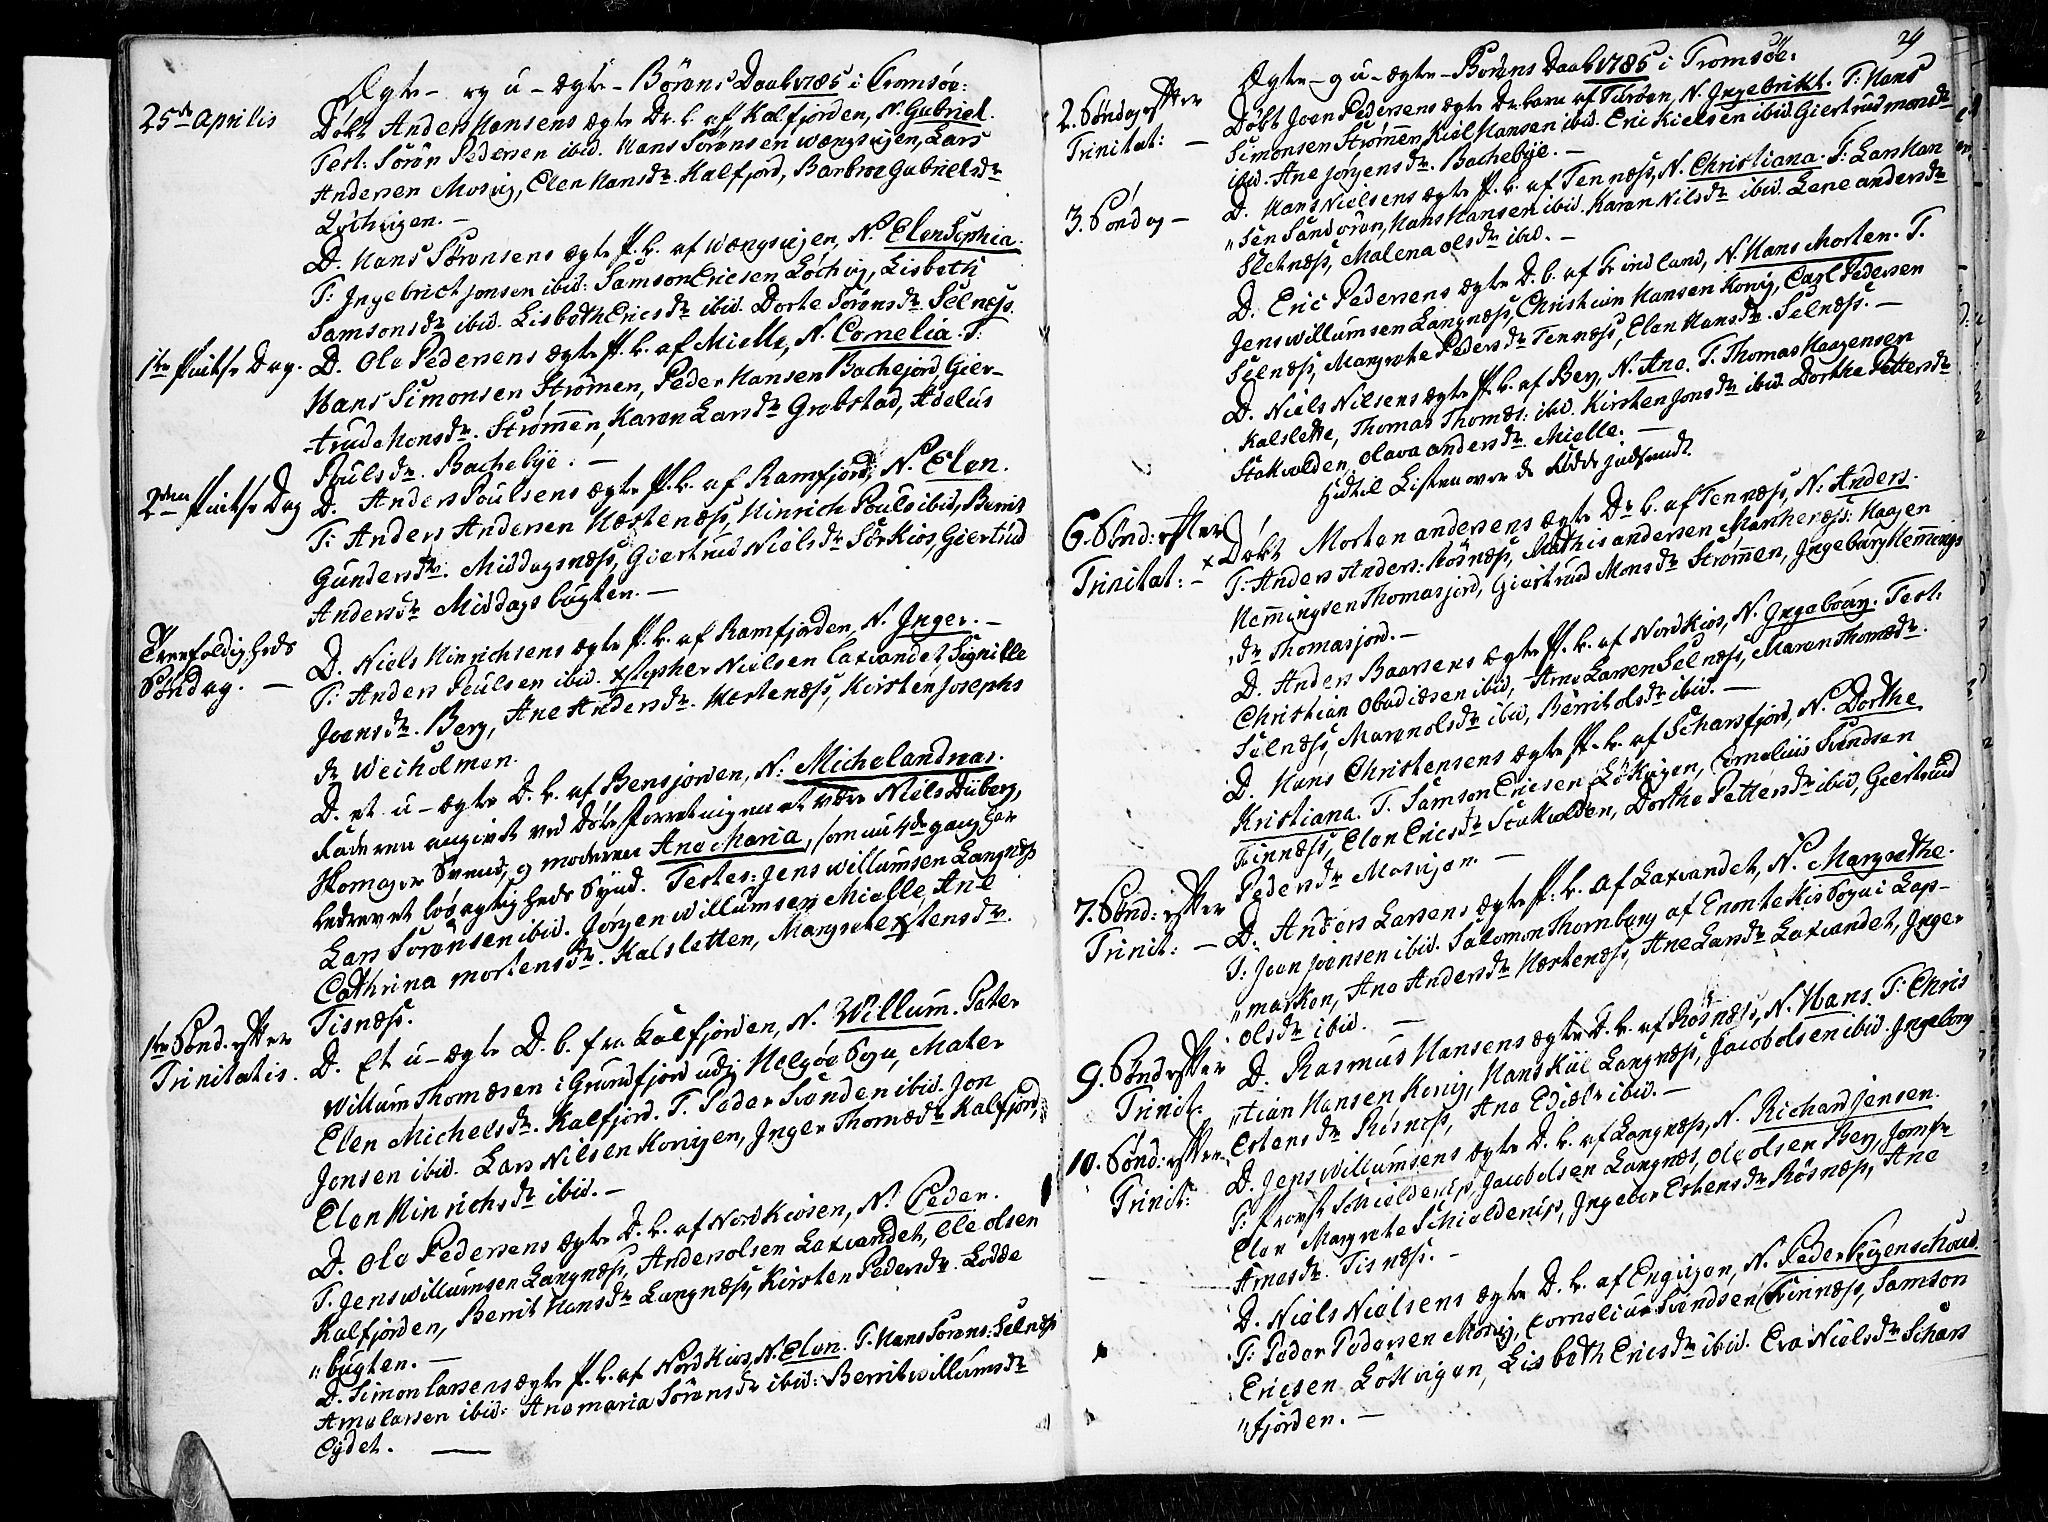 Ægte- og u-ægte-Börens Daab 1785 i Tromsöe:
25de Aprilis
Döbt Anders Hansens ægte Dr. b. af Kalfjorden, N. Gabriel.
Test: Sörön Pedersen ibid. Hans Sörensen Wængsøjen, Lars
Andersen Mosvig, Elen Hansdr. Kalfjord, Barbroe Gabrielsdr
Løthvigen. -
D. Hans Sörensens ægte P. b. af Wængsøjen, N. Elen Sophia.
T: Ingebrict Jonsen ibid: Samson Ericsen Löchvig, Lisbeth
Samsonsdr ibid. Lisbeth Ericsdr ibid. Dorte Sörensdr Selnæss.
1ste Pintse Dag.
D. Ole Pedersens ægte P. b. af Mielle, N. Cornelia. T:
Hans Simonsen Strömen, Peder Hansen Bachejord, Gier-
-trude Monsdr. Strömmen, Karen Larsdr Grebstad, Adelus
Poulsdr. Bachebye. -
2den Pintse Dag
D. Anders Poulsens ægte P. b. af Ramfjord, N. Elen.
T: Anders Andersen Hestenæss, Hinrich Pouls ibid, Berrit
Gundersdr. Middagsnæss, Giertrud Nielsdr Sörkios, Giertrud
Andersdr Middagsbugten. -
Treefoldigheds
Söndag. -
D. Niels Hinrichsens ægte P. b. af Ramfjorden, N. Inger. -
T: Anders Poulsen ibid. Xstopher Nielsen Laxvandet, Signille
Joensdr. Berg, Ane Andersdr. Hestenæss, Kirsten Josephs
dr Weiholmen.
D. et u-ægte D. b. af Bensjorden, N: Michel Andreas.
Faderen angivet ved Döbe forretningen at være Niels Duberg,
Skomager Svend, og moderen Ane Maria, som nu 4de gang har
bedrevet løsagtigheds Synd. Testes: Jens Willumsen Langnæss
Lars Sörensen ibid. Jörgen Willumsen Mielle, Ane
Cathrina Mortensdr. Kalsletten, Margrete Xstensdr.
Tisnæss.
1ste Sönd. efter
Trinitatis.
D. Et u-ægte D. b. fra Kalfjorden, N. Willum. Pater
Willum Thomæsen i Grundfjord udj Helgöe Sogn, Mater
Elen Michelsdr. Kalfjord. T. Peder Svendsen ibid. Jon
Jonsen ibid. Lars Nilsen Kovigen, Inger Thomædr Kalfjord,
Elen Hinrichsdr ibid. -
D. Ole Pedersens ægte D. b. af Nordkiosen, N. Peder.
T. Jens Willumsen Langnæss, Anders Olsen Laxvandet, Ole Olsen
Kalfjorden, Berrit Hansdr Langnæss, Kirsten Pedersdr. Lodde
"bugten. -
D. Simon Larsens ægte P. b. af Nordkios, N. Elen. T. Hans Sörens: Selnæss
Arne Larsen ibid: Anemaria Sörensdr ibid: Berrit Willumsdr
Eydet. -
29
Ægte- og u-ægte-Börens Daab 1785 i Tromsöe:
2. Söndag efter
Trinitat: -
Döbt Joen Pedersens ægte Drebarn af Tusöen, N. Ingebrikt. T: Hans
Simonsen Strömen, Kiel Hansen ibid. Eric Kielsen ibid. Giertrud Monsdr
ibid. Ane Jörgensdr. Bachebye. -
3. Söndag -
D. Hans Nielsens ægte P. b. af Tennæss, N. Christiana. T: Lars Han
"sen Sandören, Hans Hansen ibid. Karen Nilsdr ibid. Lene Andersdr
Sletnæss, Malena Olsdr ibid. -
D. Eric Pedersens ægte D. b. af Finland, N. Hans Morten. T.
Jens Willumsen Langnæss, Christian Hansen Kovig, Carl Pedersen
Selnæss, Margrete Pedersdr Tennæss, Elen Hansdr. Selnæss. -
D. Niels Nilsens ægte P. b. af Berg, N. Ane. T. Thomas Haagensen
Kalslette, Thomas Thomæs: ibid. Kirsten Jonsdr ibid. Dorthe Pettersdr
Stakvolden, Olava Andersdr. Mielle. -
Hidtil Listen over de Födde indsendt.
6. Sönd: efter
Trinitat: -
x Döbt Morten Andersens ægte Dr b. af Tennæss, N: Anders.
T: Anders Anders: Rösnæss, Mathis Andersen Mankenæss: Haagen
Hemmingsen Thomasjord, Giertrud Monsdr Strömmen, Ingeburg Hemmings
"dr Thomasjord. -
D. Anders Baarsens ægte P. b. af Nordkios, N. Ingeborg. Test:
Christian Obadiæsen ibid, Arne Larsen Selnæss, Maren Thomædr.
Selnæss, Maren Olsdr ibid, Berrit Olsdr ibid. -
D. Hans Christensens ægte P. b. af Scharsfjord, N. Dorthe
Kristiana. T. Samson Ericsen Lökvigen, Cornelius Svendsen
Finnæss, Elen Ericsdr Stakvolden, Dorthe Pettersdr ibid, Giertrud
Pedersdr Mosvigen. -
7. Sönd: efter
Trinit: -
D. Anders Larsens ægte P. b. af Laxvandet, N. Margrethe.
T: Joen Joensen ibid. Salomon Thornburg af Enontekis Sogn i Lap-
"marken, Ane Andersdr Hestenæss, Ane Larsdr Laxvandet, Inger
Olsdr ibid. -
9. Sönd efter
Trinit.
D. Rasmus Hansens ægte D. b. af Rösnæss, N. Hans. T: Chris
"tian Hansen Kovig, Hans Kiil Langnæss, Jacob Olsen ibid. Ingeborg
Estensdr Rösnæss, Ane ibid. -
10. Sönd: efter
Trinit:
D. Jens Willumsens ægte D. b. af Langnæss, N. Richard Jensen.
T: Provst Schielderup, Jacob Olsen Langnæs, Ole Olsen Berg, Jomfr
Elen Margrete Schielderup, Ingebor Estensdr Rösnæss, Ane
Arnesdr. Tisnæss. -
D. Niels Nielsens ægte D. b. af Engvigen, N. Peder Figenschoud.
T: Peder Pedersen Mosvig, Cornelius Svendsen Finnæss, Samson
Ericsen Lökvigen, Lisbeth Ericsdr ibid. Eva Nielsdr Schars
"fjorden. -